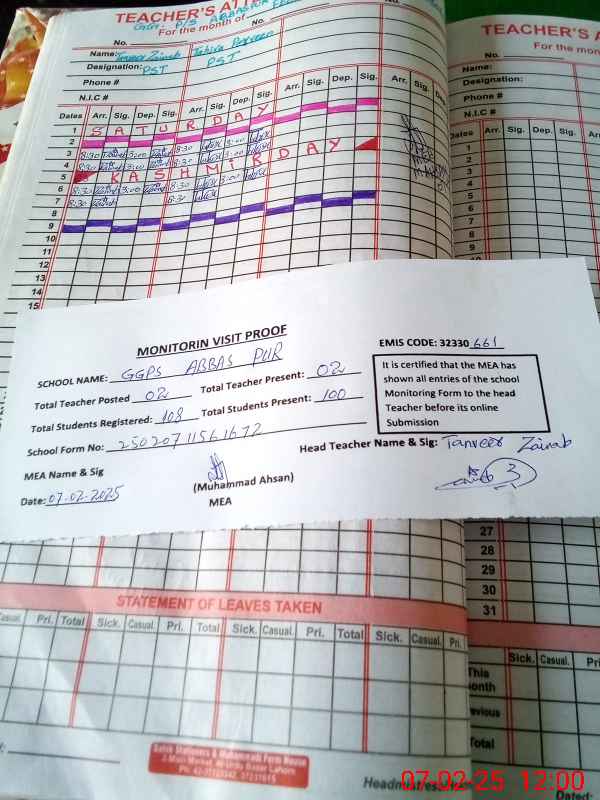 TEACHER'S ATT
GGPS P/S ABBASPUR
For the month of
No. No.
Name: Tanveer Zainab Tahira Parveen
Designation: PST PST
Phone #
N.I.C #
Dates Arr. Sig. Dep. Sig. Arr. Sig. Dep. Sig. Arr. Sig. Dep. Sig. Arr. Sig. Dep.
1 SATURDAY
2
3 8:30 3:00 8:30 3:00
4 8:30 3:00 8:30 3:00
5 KASHMIR DAY
6 8:30 3:00 8:30 3:00
7 8:30 8:30
8
9
10
11
12
13
14
15
TEACHER'S A
No.
For the mon
Name:
Designation:
Phone #
N.I.C #
Dates Arr. Sig. Dep. Sig. Arr. Sig.
1
2
3
4
5
6
7
8
9
10
11
12
MONITORIN VISIT PROOF
EMIS CODE: 32330 661
SCHOOL NAME: GGPS ABBAS PUR
Total Teacher Posted 02 Total Teacher Present: 02
Total Students Registered: 108 Total Students Present: 100
School Form No: 25020711561672
It is certified that the MEA has
shown all entries of the school
Monitoring Form to the head
Teacher before its online
Submission
Head Teacher Name & Sig: Tanveer Zainab
MEA Name & Sig
(Muhammad Ahsan)
MEA
Date: 07-02-2025
27
28
29
30
31
STATEMENT OF LEAVES TAKEN
Casual. Pri. Total Sick. Casual. Pri. Total Sick. Casual. Pri. Total Sick. Casual. Pri.
Sick. Casual. Pri
This
onth
evious
Total
Headmistress
Dated:
07-02-25 12:00